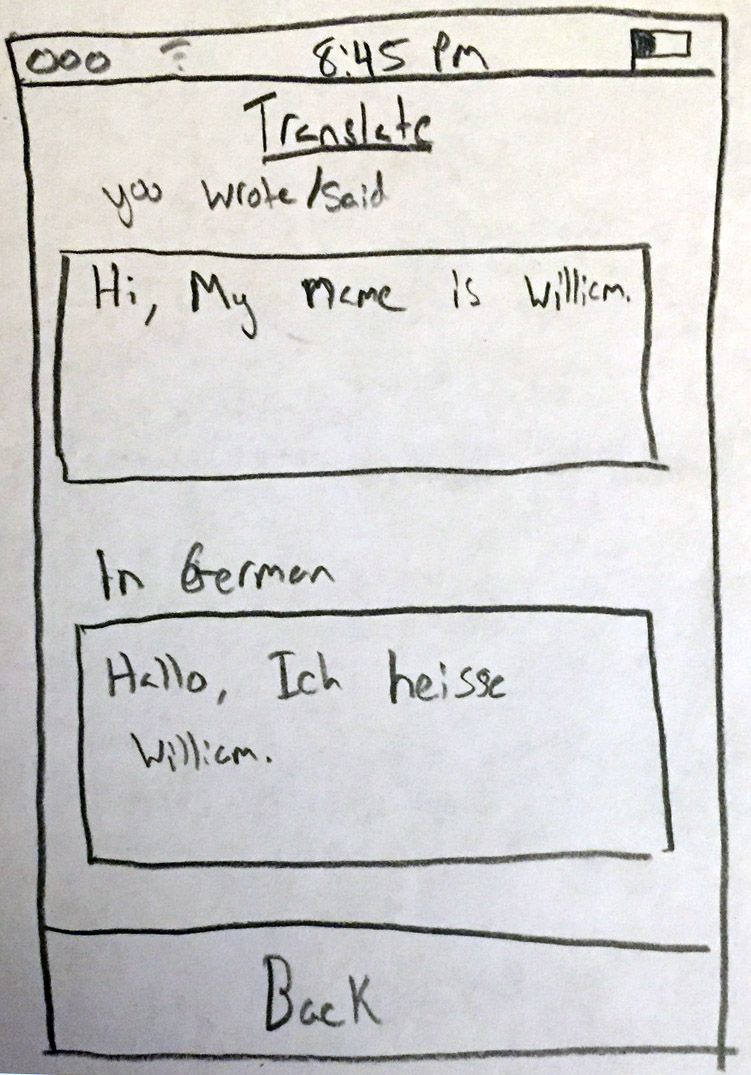 8:45 PM
Translate
you wrote/said
Hi, My name is William.
In German
Hallo, Ich heisse
William.
Back